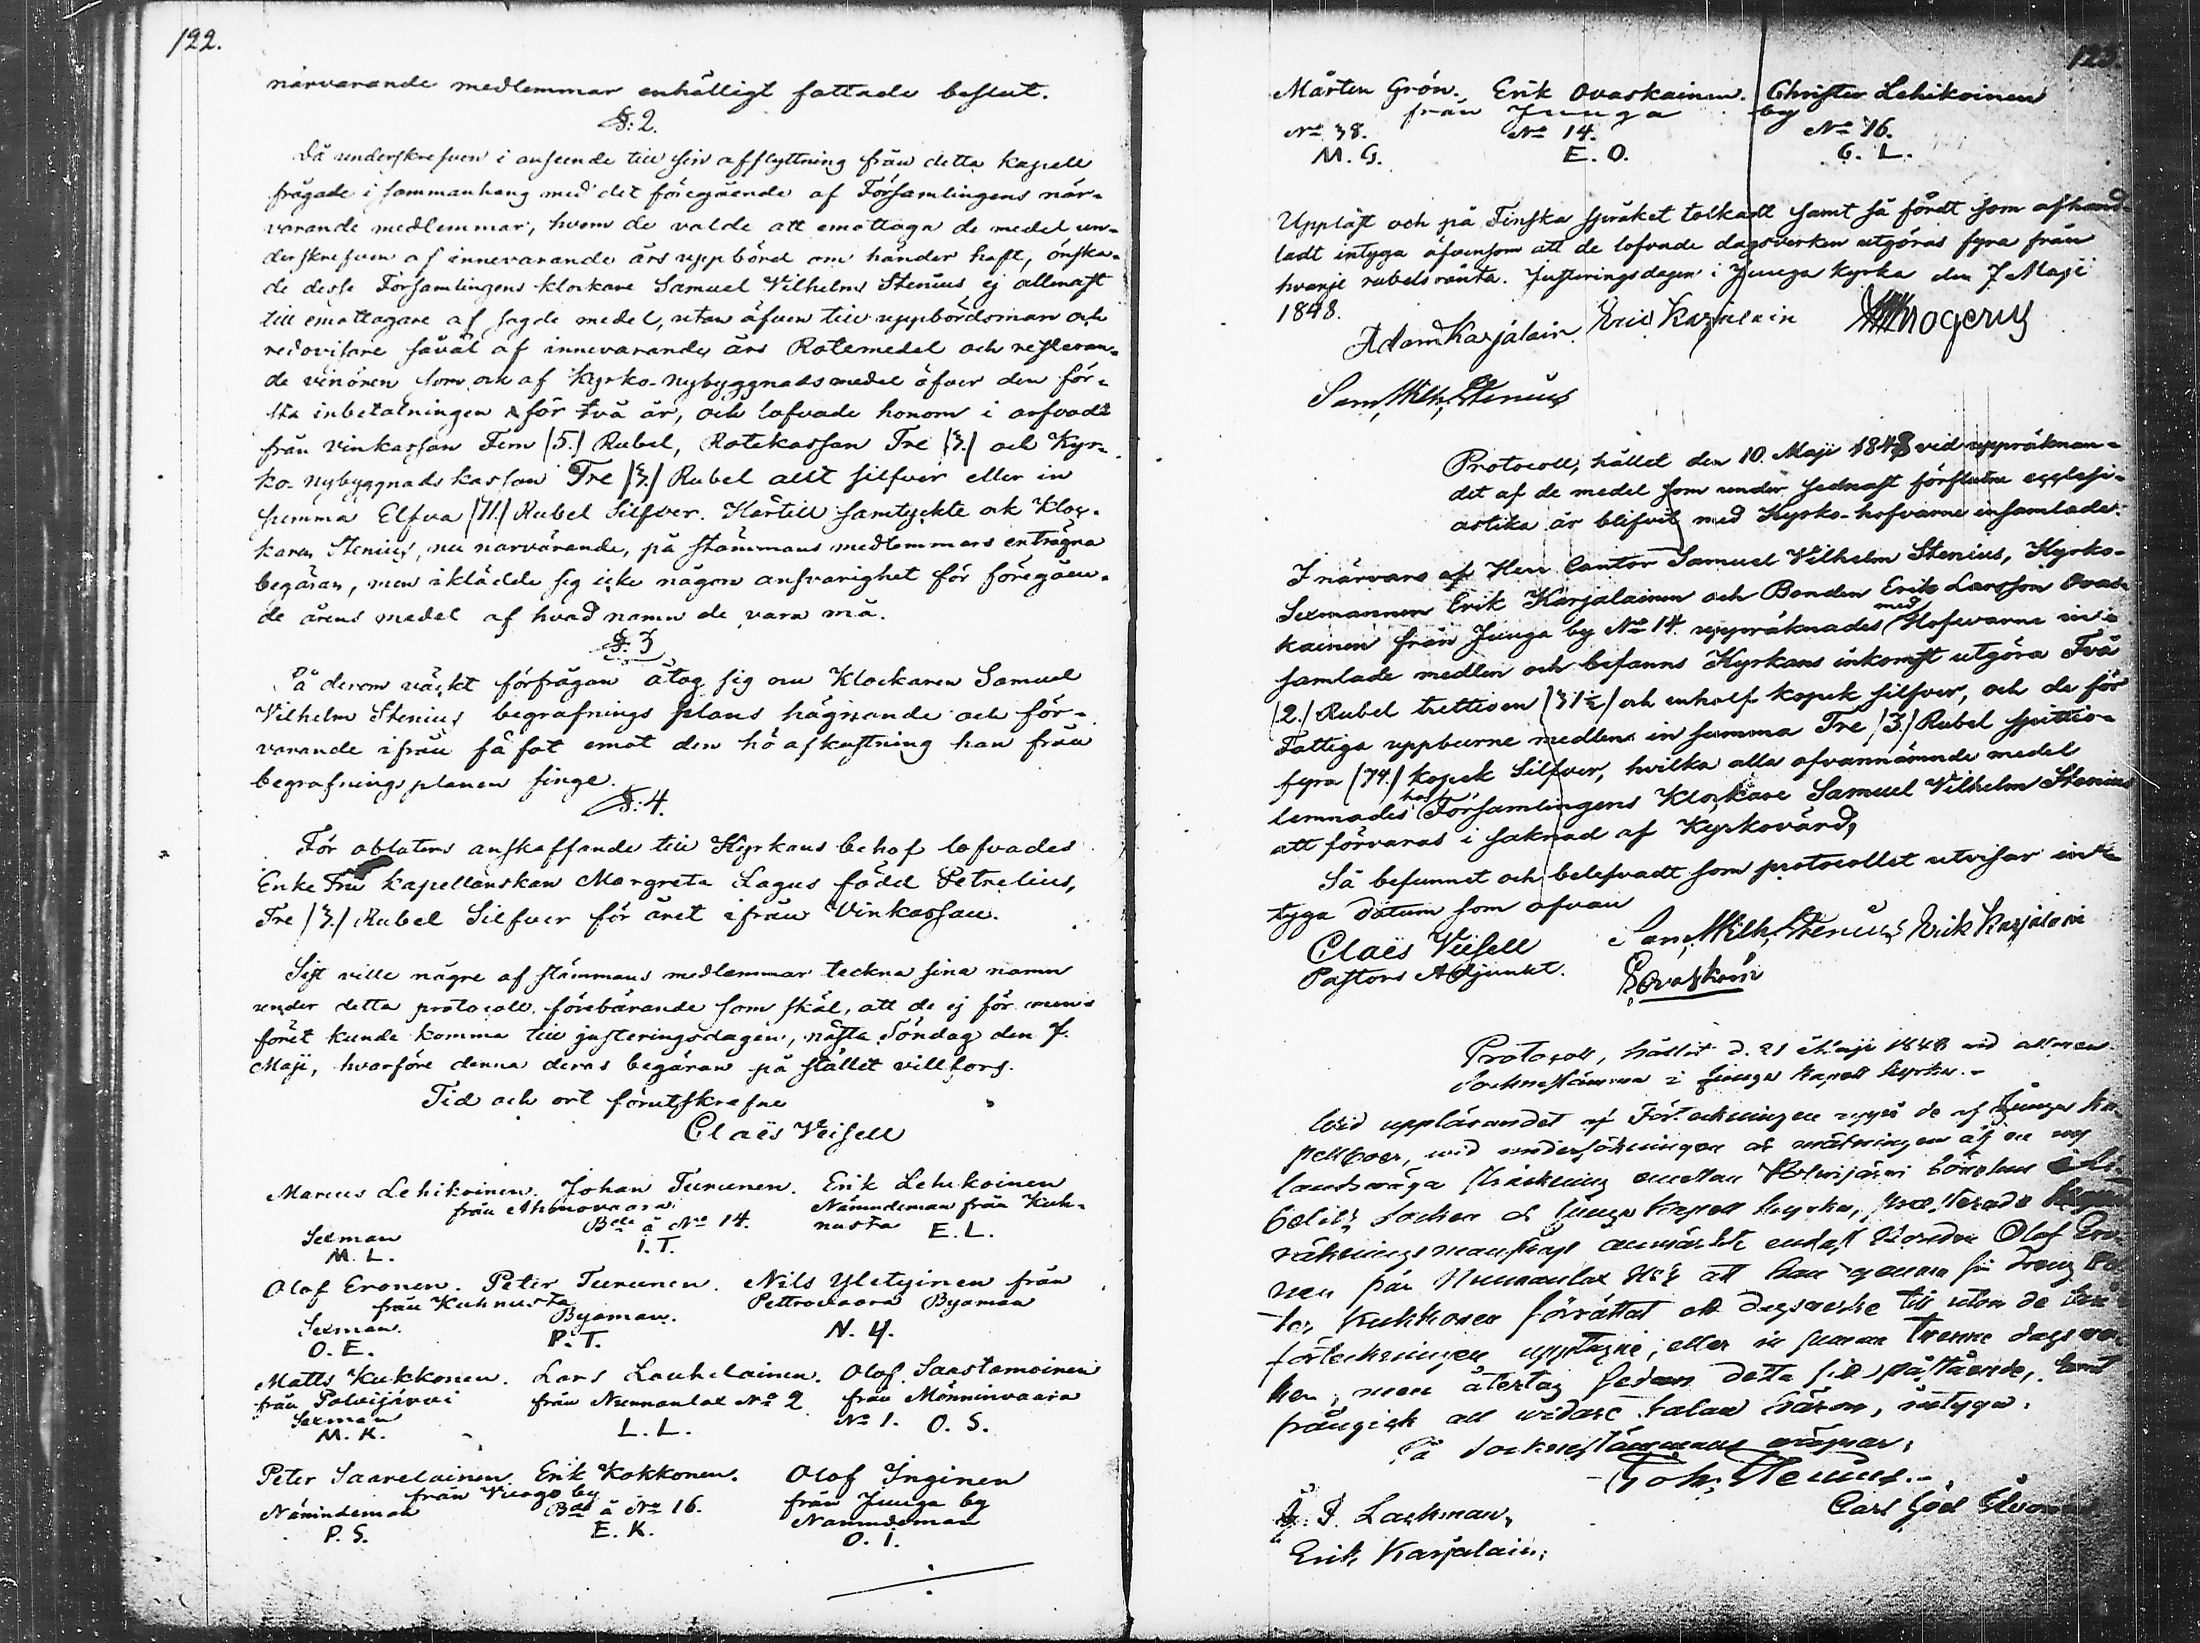 122.
närvarande medlemmar enhälligt fattade beslut.
§. 2.
Då underskrefven i anseende till sin afflyttning från detta kapell
frågade i sammanhang med det föregående af Församlingens när-
varande medlemmar, hvem de valde att emottaga de medel un-
derskrefven af innevarande års uppbörd om händer haft, önska-
de desse Församlingens klockare Samuel Vilhelm Stenius ej allenast
till emottagare af sagde medel, utan äfven till uppbördsman och
redovisare såväl af innevarande års Rotemedel och resteran-
de vinören som ock af Kyrko-nybyggnadsmedel öfver den för-
sta inbetalningen för två år, och lofvade honom i arfvode
från vinkassan Fem (5.) Rubel, Rotekassan Tre (3.) och Kyr-
ko-nybyggnads kassan Tre (3.) Rubel allt silfver eller in
summa Elfva (11.) Rubel Silfver. Härtill samtyckte ock Kloc-
karen Stenius, nu närvarande, på stämmans medlemmars enträgna
begäran, men iklädde sig icke någon ansvarighet för föregåen-
de årens medel af hvad namn de vara må.
§. 3
På derom väckt förfrågan åtog sig ou Klockaren Samuel
Vilhelm Stenius begrafnings plans hägnande och för-
varande ifrån få fat emot den hö afkastning han från
begrafningsplanen finge.
§. 4.
För oblaters anskaffande till Kyrkans behof lofvades
Enke Fru kapellanskan Margreta Lagus född Petrelius,
Tre (3.) Rubel Silfver för året ifrån Vinkassan.
Sist ville några af stämmans medlemmar teckna sina namn
under detta protocoll, förebärande som skäl, att de ej för men-
föret kunde komma till justeringsdagen, nästa Söndag den 7.
Maji, hvarföre denna deras begäran på stället villfors.
Tid och ort förutskrefne
Claës Veisell
Marcus Lehikoinen. Johan Turunen. Erik Lehikoinen
från Ahmovaara Nämndeman från Kuh-
Sexman Bde å No 14. nusta E. L.
M. L. I. T.
Olof Eronen. Peter Turunen. Nils Yletyinen från
från Kuhnusta Pettrovaara Byaman
Sexman. Byaman.
O. E. P. T. N. Y.
Matts Kukkonen. Lars Laukelainen. Olof Saastamoinen
från Polvijärvi från Nunnanlax No 2 från Mönninvaara
Sexman No 1. O. S.
M. K. L. L.
Peter Saarelainen. Erik Kokkonen. Olof Inginen
från Vuogo by från Juuga by
Nämndeman Bde å No 16. Nämndeman
P. S. E. K. O. I.
123.
Mårten Grön. Erik Ovaskainen. Christer Lehikoinen
från Juuga by
No 38. No 14. No 16.
M. G. E. O. C. L.
Uppläst och på Finska språket tolkadt samt så fördt som afhand-
ladt intyga äfvensom att de lofvade dagsverken utgöras fyra från
hvarje rubels ränta. Justeringsdagen i Juuga kyrka den 7 Maji
1848.
Adam Karjalain. Eric Karjalain
Sam. Wilh. Stenius
Protocoll, hållet den 10. Maji 1848 vid uppräknan-
det af de medel som under sednast förflutne ecclesi-
astika år blifvit med Kyrko-hofvarne insamlade.
I närvaro af Herr Cantor Samuel Vilhelm Stenius, Kyrko-
Sexmannen Erik Karjalainen och Bonden Erik Larsson Ovas-
kainen från Juuga by No 14. uppräknades med Hofvarne in-
samlade medlen och befanns Kyrkans inkomst utgöra Två
(2.) Rubel trettioen (31½) och enhalf kopek silfver, och de för
Fattiga uppburne medlen in summa Tre (3.) Rubel sjuttio-
fyra (74.) kopek Silfver, hvilka alla ofvannämnde medel
lemnades hos Församlingens Klockare Samuel Vilhelm Stenius
att förvaras i saknad af Kyrkovärd,
Så befunnet och belefvadt som protocollet utvisar in-
tyga datum som ofvan
Claës Veisell Sam. Wilh. Stenius Erik Karjalain
Pastors Adjunkt. E Ovaskain
Protocoll, hållit d. 21 Maji 1848 vid allmän
Sockne stämma i Juuga Kapell kyrka.-
Wid uppläsandet af Förteckningen uppå de af Juuga Ka-
pellboer, wid undersökningen och mätningen af en ny
landswäga sträckning emellan Polvijärvi bönehus i
Socken och Juuga Kapell kyrka,
räknings manskap anmärkte endast Bonden Olof Ero-
nen från Nunnanlax att han genom sin dreng
Kukkonen förrättat ett dagswerke till utom de
förteckningen upptagne, eller in summa trenne dagswer-
ken, men återtog sedan detta sitt påstående,
frångick all widare talan härom, intyga.
På Sockenstämmans wägnar,
Joh. Stenius.-
Carl Joel
P. Lackman,
Erik Karjalain,